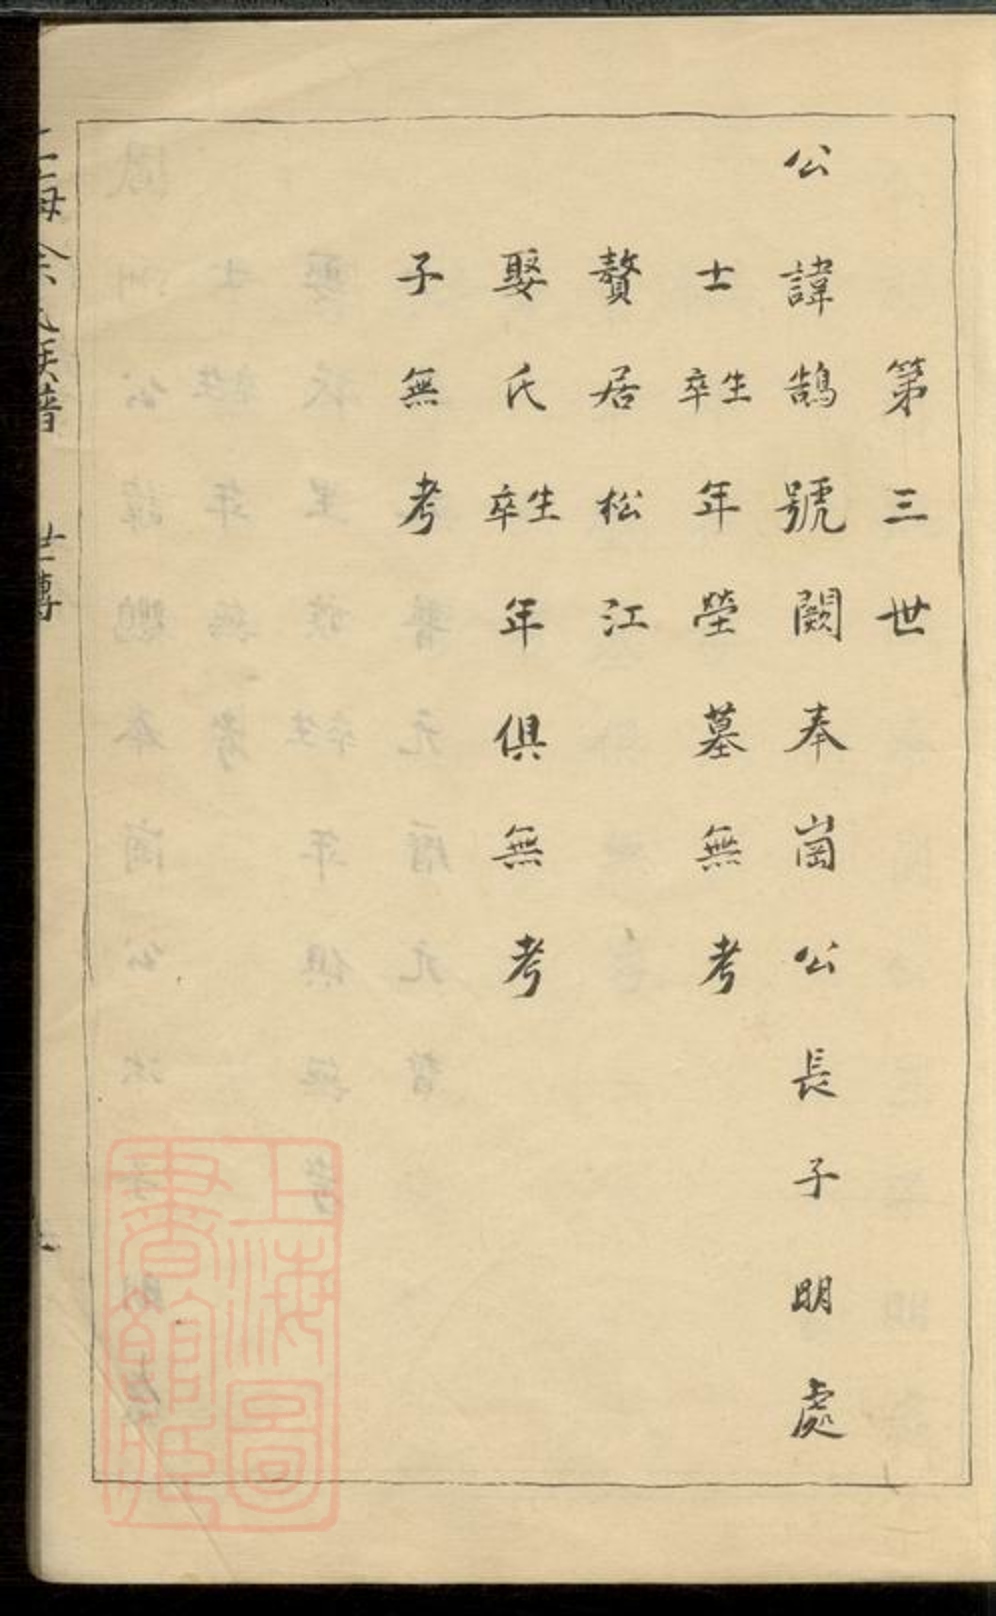 第三世
公諱鵠號闕奉崗公長子明處
士生卒年塋墓無考
贅居松江
娶氏生卒年俱無考
子無考
上海余氏族譜 世傳
上海圖書館藏